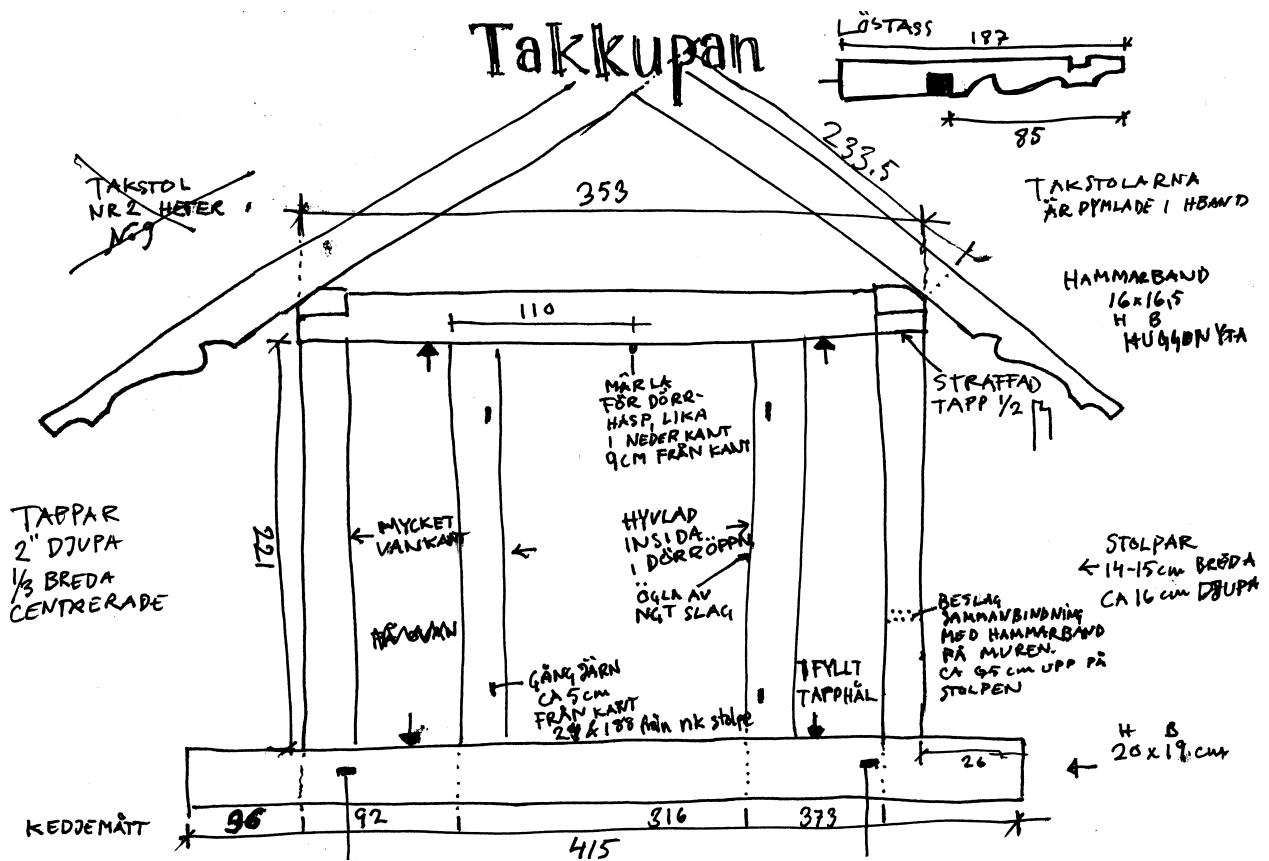 Takkupan
LÖSTASS
187
85
233,5
TAKSTOL
NR 2 HETER
No 9
353
TAKSTOLARNA
ÄR DYMLADE I HBAND
HAMMARBAND
16x16,5
H B
HUGGEN YTA
110
MÄRLA
FÖR DÖRR-
HASP, LIKA
I NEDERKANT
9CM FRÅN KANT
STRAFFAD
TAPP 1/2
TAPPAR
2" DJUPA
1/3 BREDA
CENTRERADE
221
MYCKET
VANKANT
HYVLAD
INSIDA
I DÖRRÖPPN
ÖGLA AV
NGT SLAG
STOLPAR
14-15cm BREDA
CA 16 cm DJUPA
BESLAG
SAMMANBINDNING
MED HAMMARBAND
PÅ MUREN.
CA 95 cm UPP PÅ
STOLPEN
GÅNGJÄRN
CA 5 cm
FRÅN KANT
& 188 från nk stolpe
IFYLLT
TAPPHÅL
H B
20 x 19 cm
26
KEDJEMÅTT
96 92 316 373
415